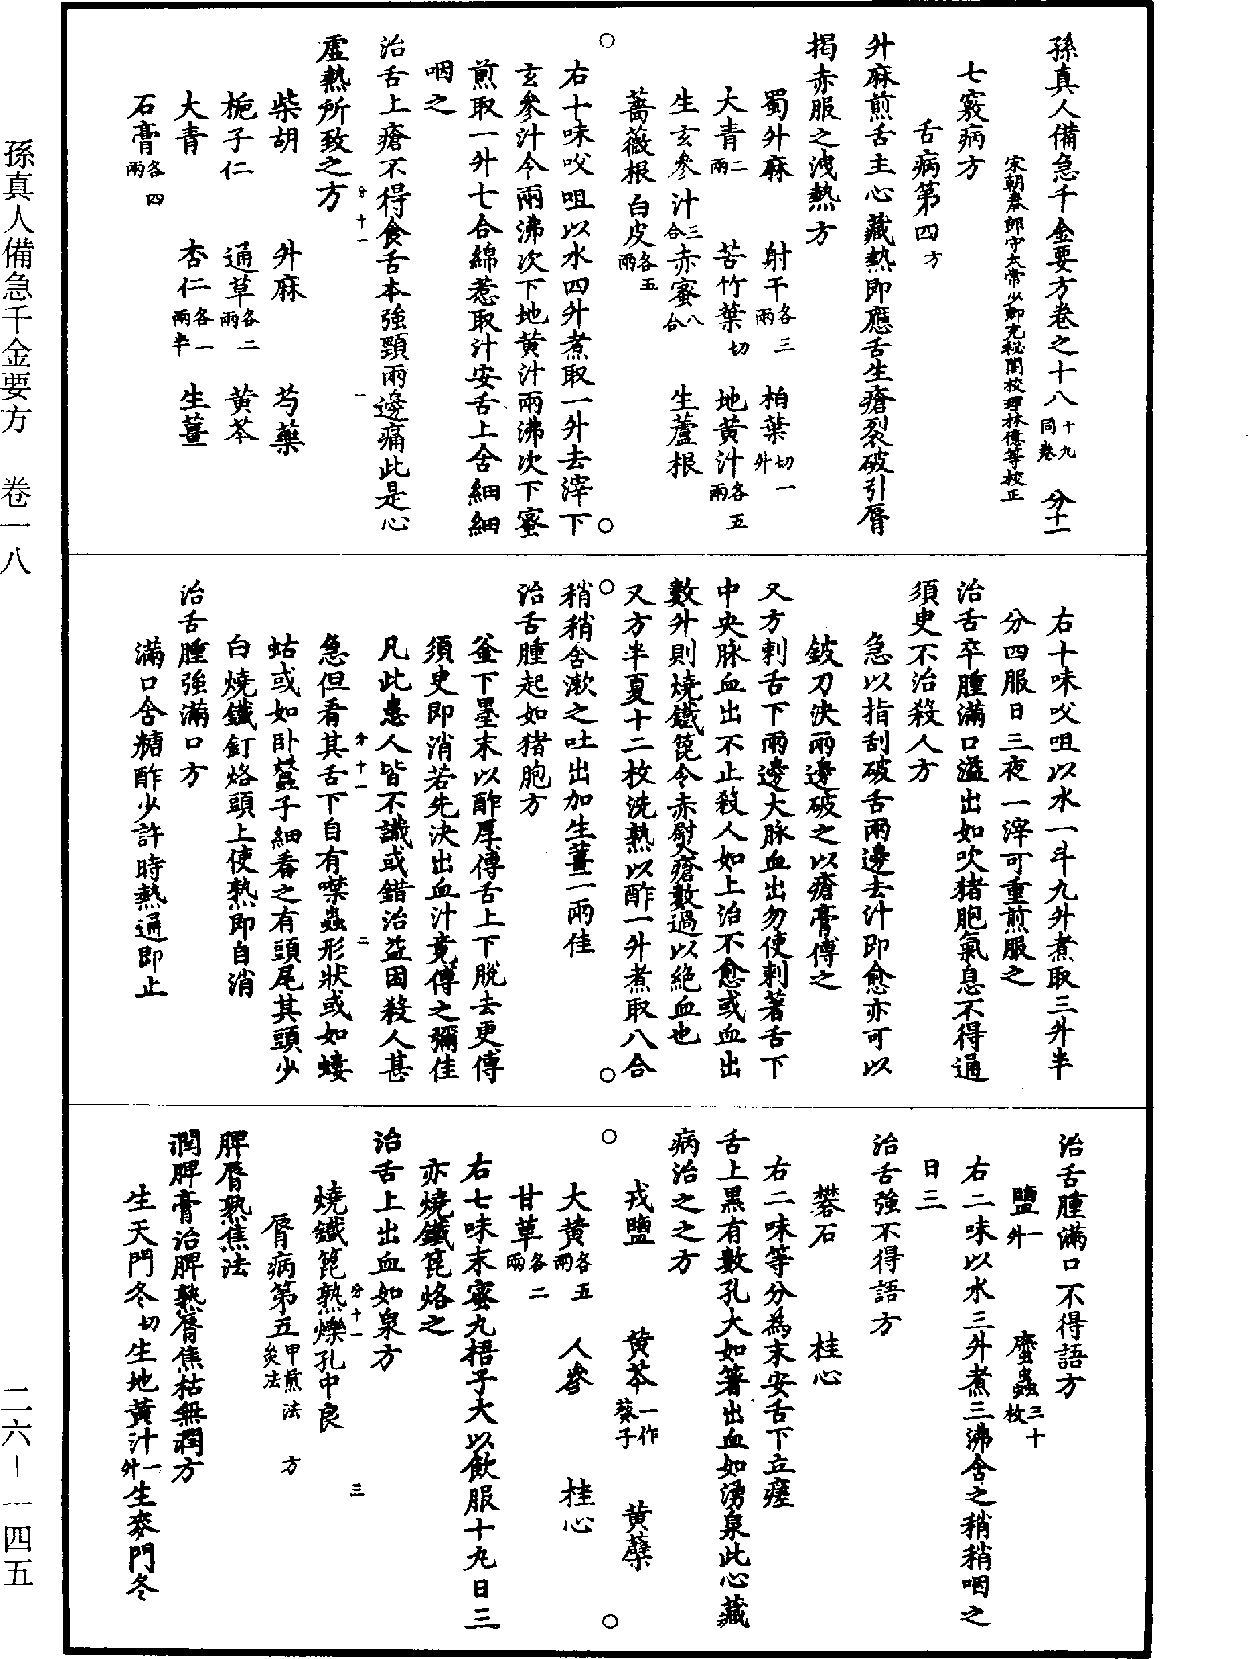 孫真人備急千金要方卷之十八十九同卷 分十一
宋朝奉郎守太常少卿充秘閣校理林億等校正
七竅病方
舌病第四方
升麻煎舌主心藏熱即應舌生瘡裂破引脣
揭赤服之洩熱方
蜀升麻 射干各三兩 柏葉切一升
大青二兩 苦竹葉切 地黃汁各五兩
生玄參汁三合赤蜜八合 生蘆根
薔薇根白皮各五兩
右十味㕮咀以水四升煮取一升去滓下
玄參汁令兩沸次下地黃汁兩沸次下蜜
煎取一升七合綿惹取汁安舌上含細細
咽之
治舌上瘡不得食舌本強頸兩邊痛此是心
分十一 一
虛熱所致之方
柴胡 升麻 芍藥
梔子仁 通草各二兩 黃芩
大青 杏仁各一兩半 生薑
石膏各四兩
右十味㕮咀以水一斗九升煮取三升半
分四服日三夜一滓可重煎服之
治舌卒腫滿口溢出如吹猪胞氣息不得通
須臾不治殺人方
急以指刮破舌兩邊去汁即愈亦可以
鈹刀決兩邊破之以瘡膏傅之
又方刺舌下兩邊大脉血出勿使刺著舌下
中央脉血出不止殺人如上治不愈或血出
數升則燒鐵篦令赤熨瘡數過以絕血也
又方半夏十二枚洗熟以酢一升煮取八合
稍稍含漱之吐出加生薑一兩佳
治舌腫起如猪胞方
釜下墨末以酢厚傅舌上下脫去更傅
須臾即消若先決出血汁竟傅之彌佳
凡此患人皆不識或錯治益困殺人甚
分十一 二
急但看其舌下自有噤蟲形狀或如螻
蛄或如卧蠶子細看之有頭尾其頭少
白燒鐵釘烙頭上使熟即自消
治舌腫強滿口方
滿口含糖酢少許時熱通即止
治舌腫滿口不得語方
鹽一升 䗪蟲三十枚
右二味以水三升煮三沸含之稍稍咽之
日三
治舌強不得語方
礬石 桂心
右二味等分為末安舌下立瘥
舌上黑有數孔大如箸出血如湧泉此心藏
病治之之方
戎鹽 黃芩一作葵子 黃蘗
大黃各五兩 人參 桂心
甘草各二兩
右七味末蜜丸梧子大以飲服十丸日三
亦燒鐵篦烙之
治舌上出血如泉方
燒鐵篦熟爍孔中良
分十一 三
脣病第五甲煎法 方 灸法
脾脣熱焦法
潤脾膏治脾熱脣焦枯無潤方
生天門冬切生地黃汁一升生麥門冬
孫真人備急千金要方 卷一八
二六－一四五